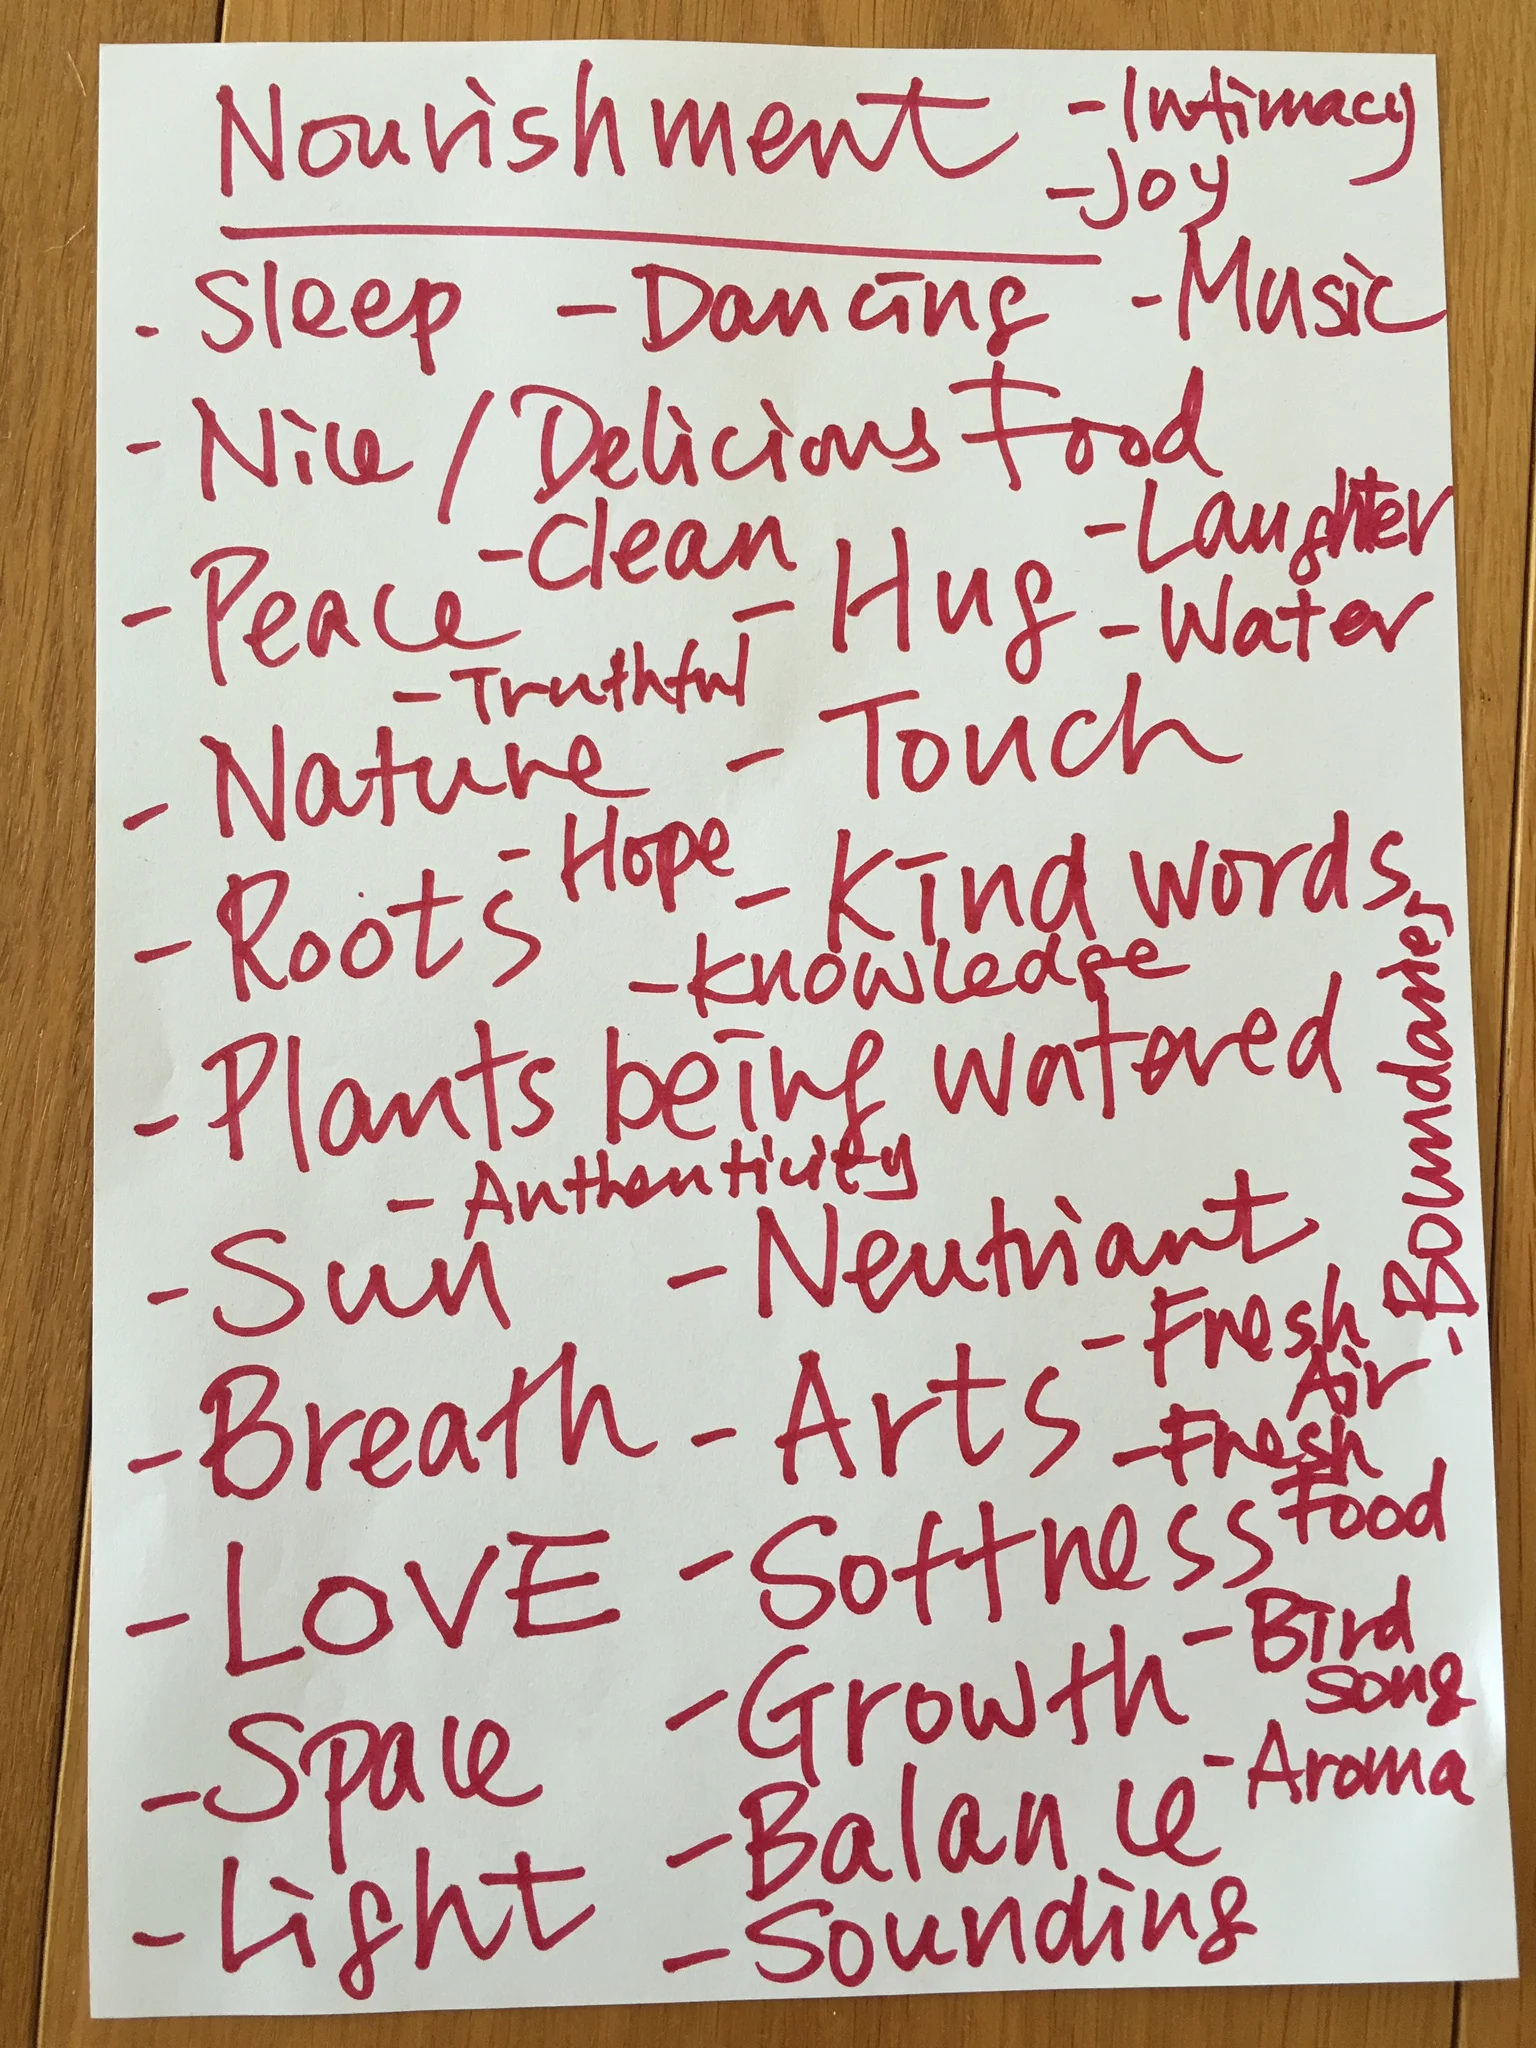 Nourishment
- Intimacy
- Joy
- Sleep - Dancing - Music
- Nice / Delicious Food
- Clean
- Laughter
- Peace - Hug - Water
- Truthful
- Nature - Touch
- Hope
- Roots - Kind words
- Knowledge
- Plants being watered
- Boundaries
- Authenticity
- Sun - Neutriant
- Fresh
Air
- Breath - Arts - Fresh
Food
- LOVE - Softness
- Bird
song
- Space - Growth
- Aroma
- Balance
- Light - Sounding